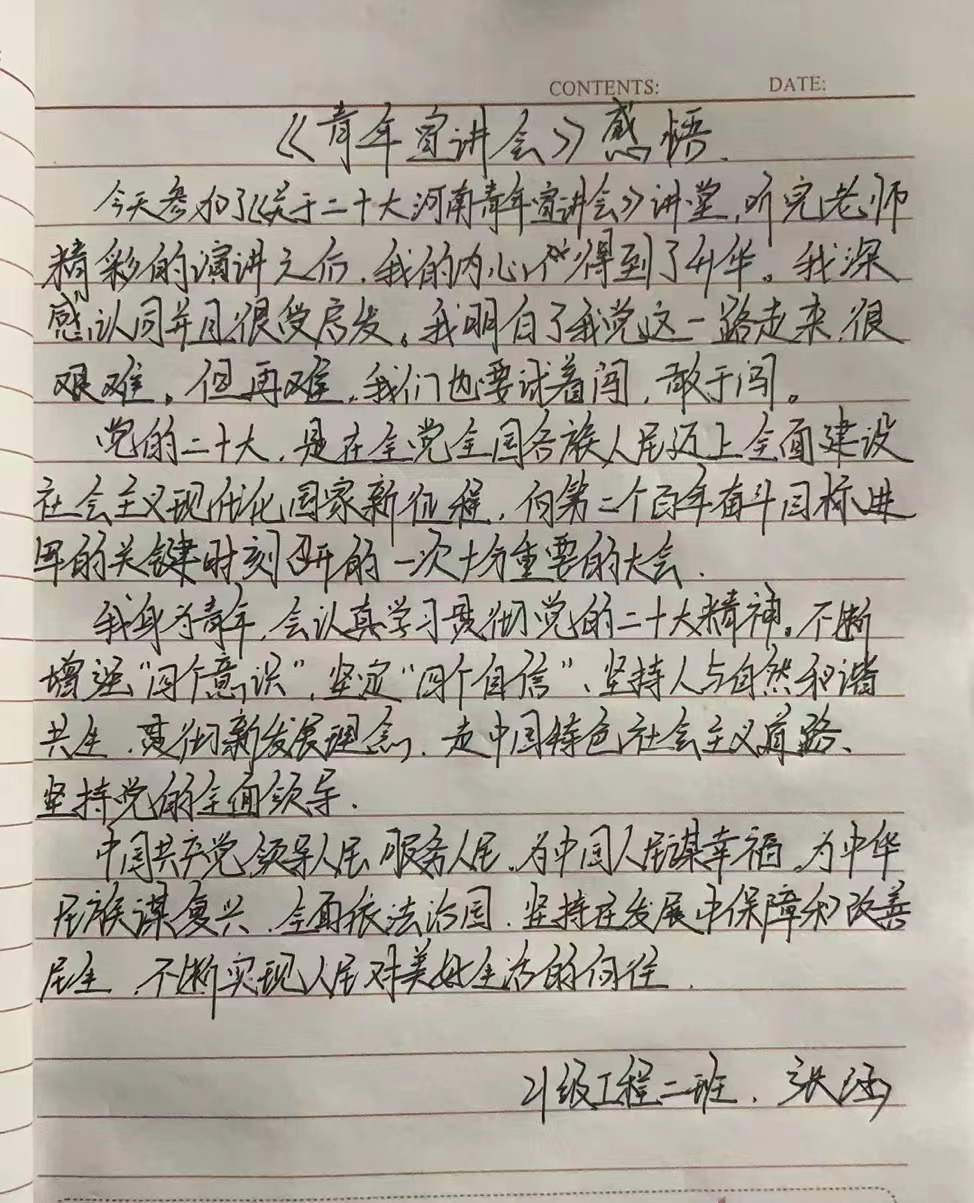 CONTENTS: DATE:
《青年宣讲会》感悟.
今天参加了《关于二十大河南青年宣讲会》讲堂,听完老师
精彩的演讲之后,我的内心得到了升华。我深
感认同并且很受启发。我明白了我党这一路走来,很
艰难。但再难,我们也要试着闯,敢于闯。
党的二十大,是在全党全国各族人民迈上全面建设
社会主义现代化国家新征程,向第二个百年奋斗目标进
军的关键时刻召开的一次十分重要的大会.
我身为青年,会认真学习贯彻党的二十大精神。不断
增强"四个意识",坚定"四个自信"、坚持人与自然和谐
共生,贯彻新发展理念,走中国特色社会主义道路、
坚持党的全面领导.
中国共产党领导人民服务人民,为中国人民谋幸福,为中华
民族谋复兴,全面依法治国,坚持在发展中保障和改善
民生,不断实现人民对美好生活的向往.
21级工程二班. 张涵